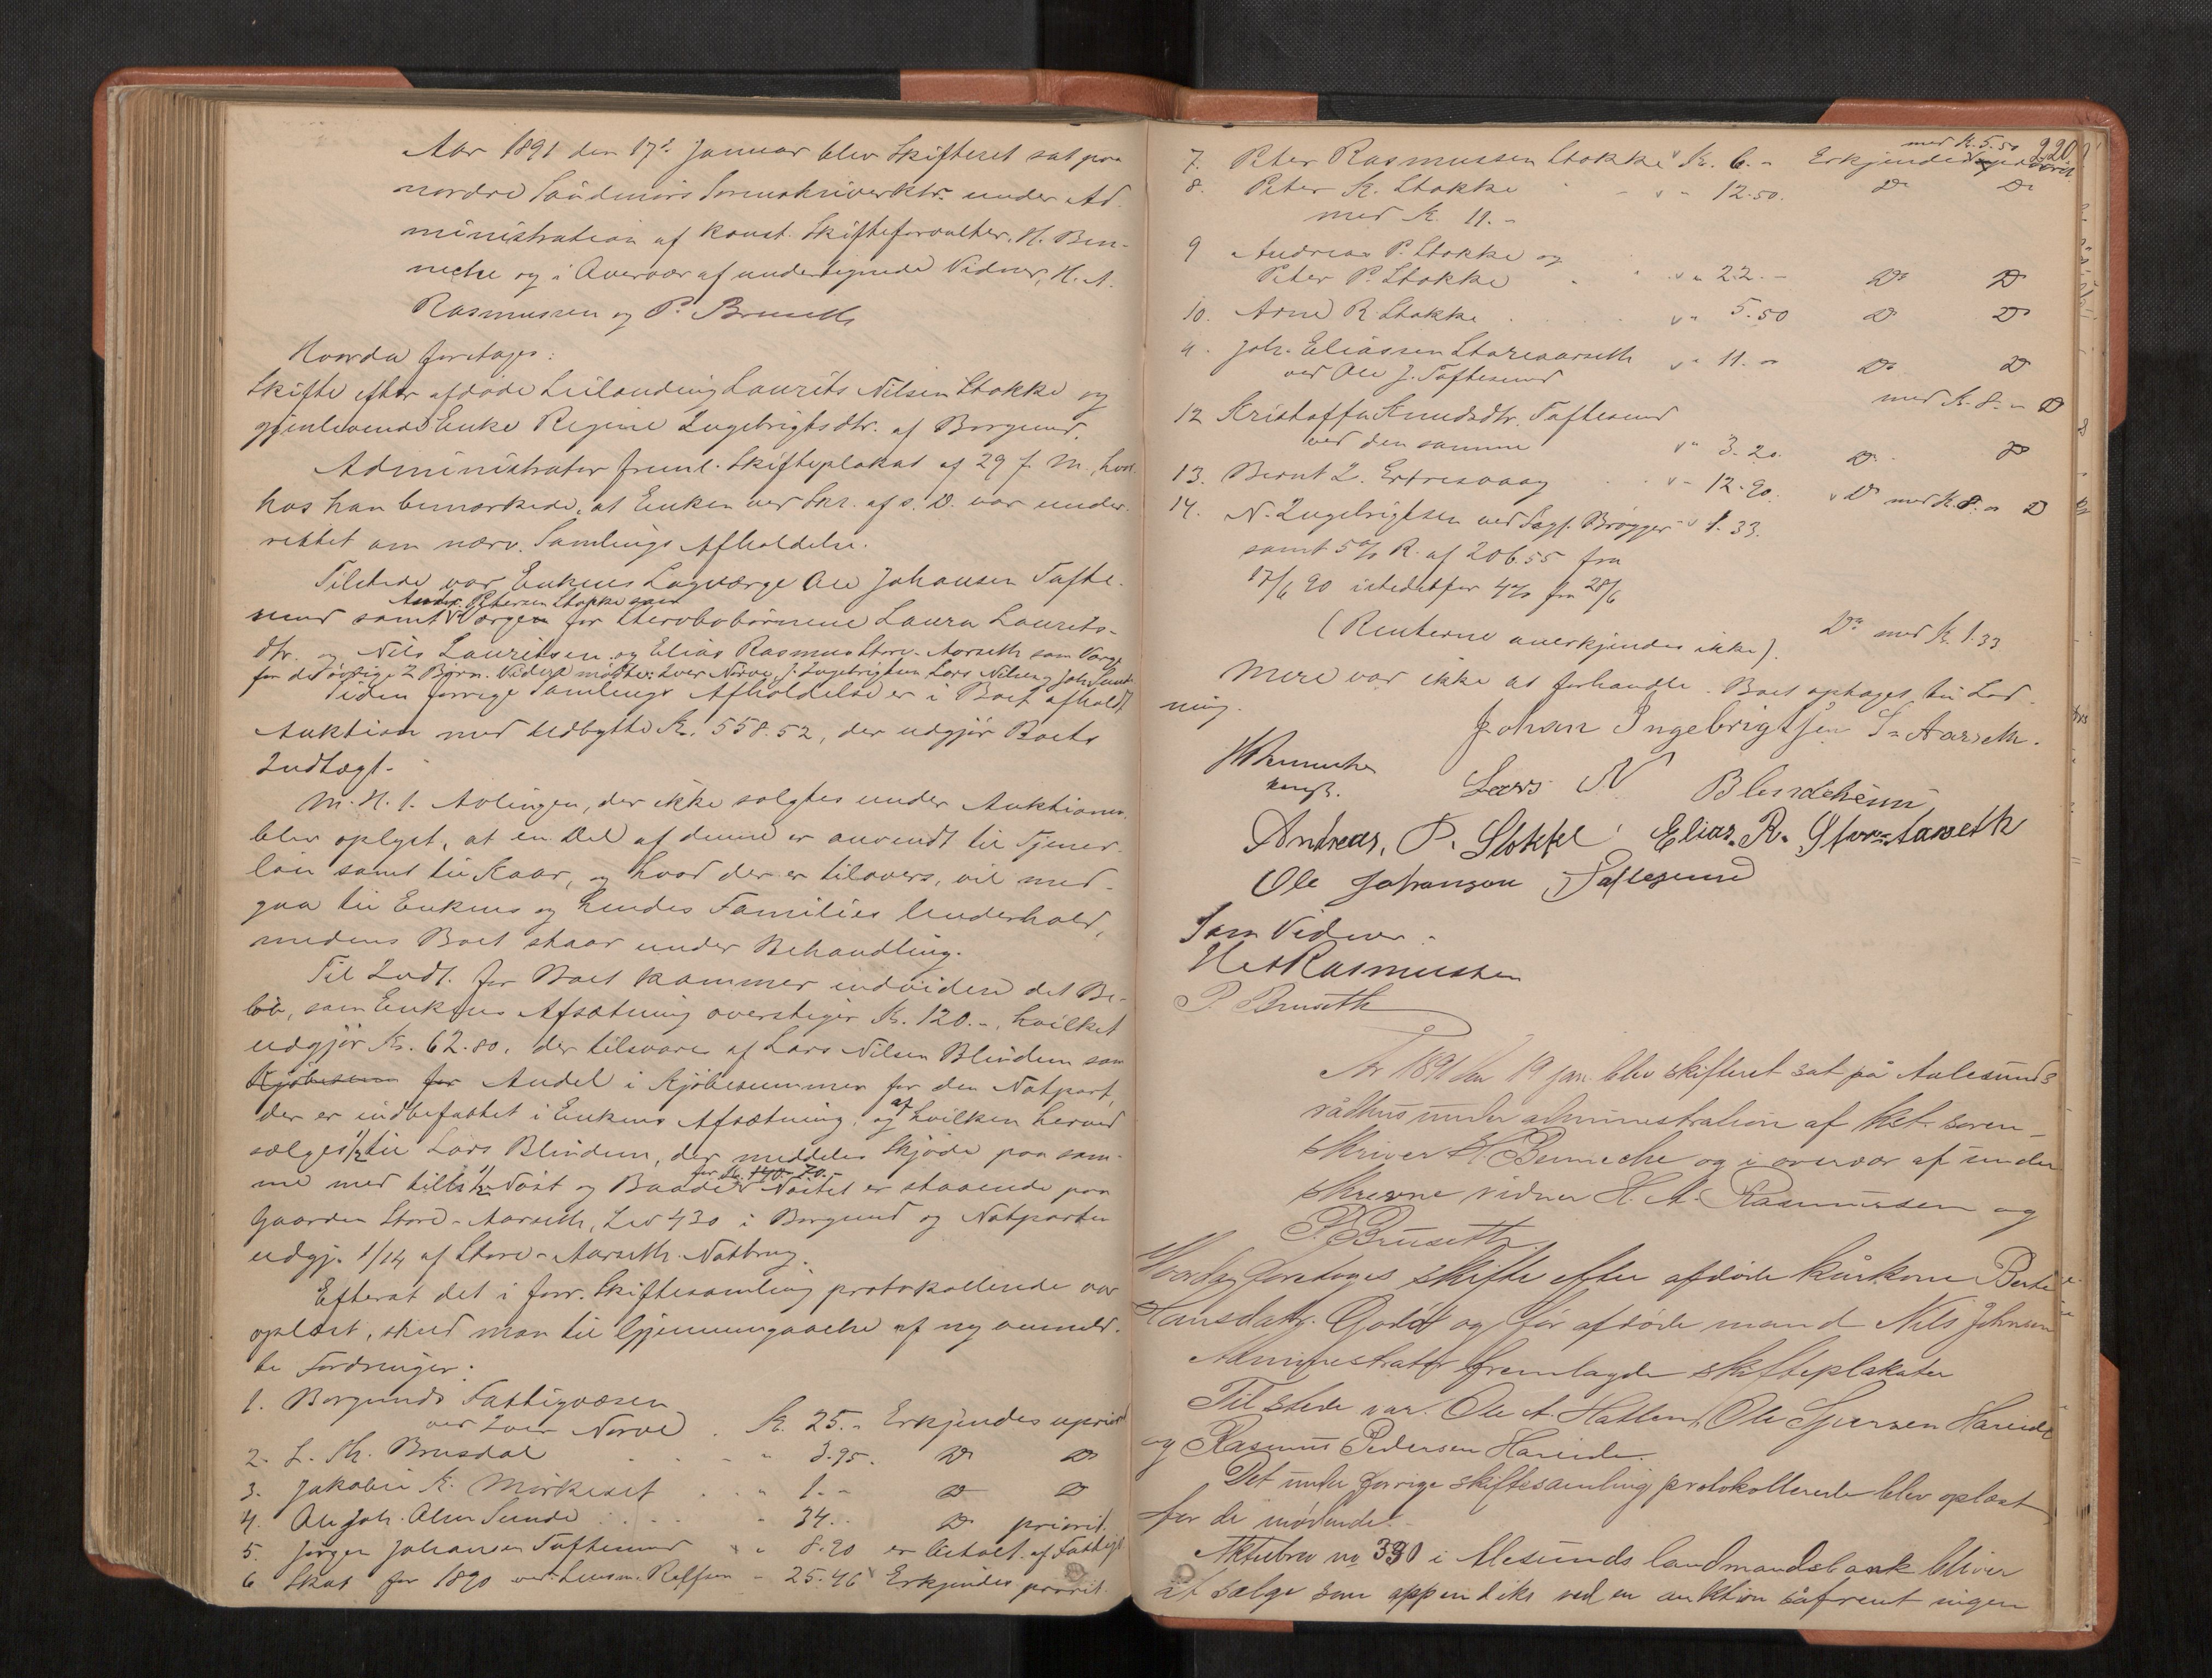 Aar 1891 den 17de Januar blev Skifteret sat paa
nordre Søndmørs Sorenskriverktr. under Ad-
ministration af konst. Skifteforvalter, H. Ben-
neche og i Overvær af undertegnede Vidner, H. A.
Rasmussen og P. Bruseth
Hvorda foretages:
Skifte efter afdøde Leilænding Laurits Nilsen Stokke og
gjenlevende Enke Regine Ingebrigtsdtr. af Borgund.
Administrator freml. Skifteplakat af 29 f. M., hvor-
hos han bemærkede, at Enken ved Skr. af s. D. var under-
rettet om nærv. Samlings Afholdelse.
Tilstede var Enkens Lagværge Ole Johansen Tafte-
Andr. Petersen Stokke som
sund samt Værgen for Sterbobørnene Laura Laurits-
dtr. og Nils Lauritsen og Elias Rasmus Store-Aarseth som Værge
for de øvrige 2 Børn. Videre mødte: Iver Nørve, J. Ingebrigtsen Lars Nilsen og Joh. Sunde
Siden forrige Samlings Afholdelse er i Boet afholdt
Auktion med Udbytte Kr. 558.52, der udgjør Boets
Indtægt.
M. H. t. Avlingen, der ikke solgtes under Auktionen
blev oplyst, at en Del af denne er anvendt til Tjener-
løn samt til Kaar, og hvad der er tilovers, vil med-
gaa til Enkens og hendes Families Underhold,
medens Boet staar under Behandling.
Til Indt. for Boet kommer endvidere det Be-
løb, som Enkens Afsætning overstiger Kr. 120.-, hvilket
udgjør Kr. 62.80, der tilsvares af Lars Nilsen Blindem som
Kjøbesum for Andel i Kjøbesummen for den Notpart,
der er indbefattet i Enkens Afsætning, og af hvilken herved
sælges 1/2 til Lars Blindem, der meddeles Skjøde paa sam-
for Kr. 140 70.-
me med tilh. 1/2 Nøst og Baade Nøstet er staaende paa
Gaarden Store-Aarseth, Lno 430 i Borgund og Notparten
udgj. 1/14 af Store-Aarseth Notbrug.
Efterat det i forr. Skiftesamling protokollerede var
oplæst, skred man til Gjennemgaaelse af ny anmeld-
te Fordringer:
1. Borgunds Fattigvæsen
ved Iver Nørve . Kr. 25.- Erkjendes uprior.
2. L. Th. Brusdal . . . - " 3.95. Do Do
3. Jakobin K. Mørkeset . . " 1.- Do Do
4. Ole Joh. Alm Sunde . . . " 34.- Do priorit.
5. Jørgen Johansen Taftesund " " 8.20 er betalt af Fattigk
6 Skat for 1890 ved Lensm. Rolfsen - 25.46 Erkjendes priorit.
220.
med Kr. 5.50
7. Peter Rasmussen Stokke " Kr. 6.- Erkjendes uprior.
8. Peter K. Stokke - " - 12.50. Do Do
med Kr. 11.-
9 Andreas P. Stokke og
Peter P. Stokke . " " 22.- Do Do
10. Arne R. Stokke . . . " " 5.50 Do Do
11. Joh. Eliassen Storeaarseth " - 11.- Do Do
ved Ole J. Taftesund
med Kr. 8.- Do
12 Kristoffa Knudsdtr. Taftesund
ved den samme " " 3.20. Do Do
13. Bernt L. Ertresvaag . . " - 12.90. " Do med Kr. 8.- Do
14. N. Ingebrigtsen ved Sagf. Brøgger " 1.33.
samt 5% R. af 206.55 fra
17/6 90 istedetfor 4% fra 28/6
(Renterne anerkjendes ikke). Do med Kr. 1.33
Mere var ikke at forhandle. Boet optages til Lod-
ning.
Johan Ingebrigtsen S-Aarseth.
HBenneche
konst.
Lars N Blindeheim
Andreas. P. Stokke Elias. R. Store-Aarseth
Ole Johansen Taftesund
Som Vidner:
HARasmussen
P. Bruseth
År 1891 den 19 jan. blev skifteret sat på Aalesunds
rådhus under administration af kst. soren-
skriver H. Benneche og i overvær af under-
skrevne vidner H. A. Rasmussen og
P. Bruseth.
Hvorda foretages skifte efter afdøde kårkone Berte
Hansdatr. Godø og før afdøde mand Nils Johnsen
Administrator fremlagde skifteplakaten
Til stede var. Ole A. Hatlem, Ole Sjursen Hareide
og Rasmus Pedersen Hareide.
Det under forrige skiftesamling protokollerede blev oplæst
for de mødende.
Aktiebrev no 330 i Alesunds landmandsbank bliver
at sælge som appendiks ved en auktion såfremt ingen